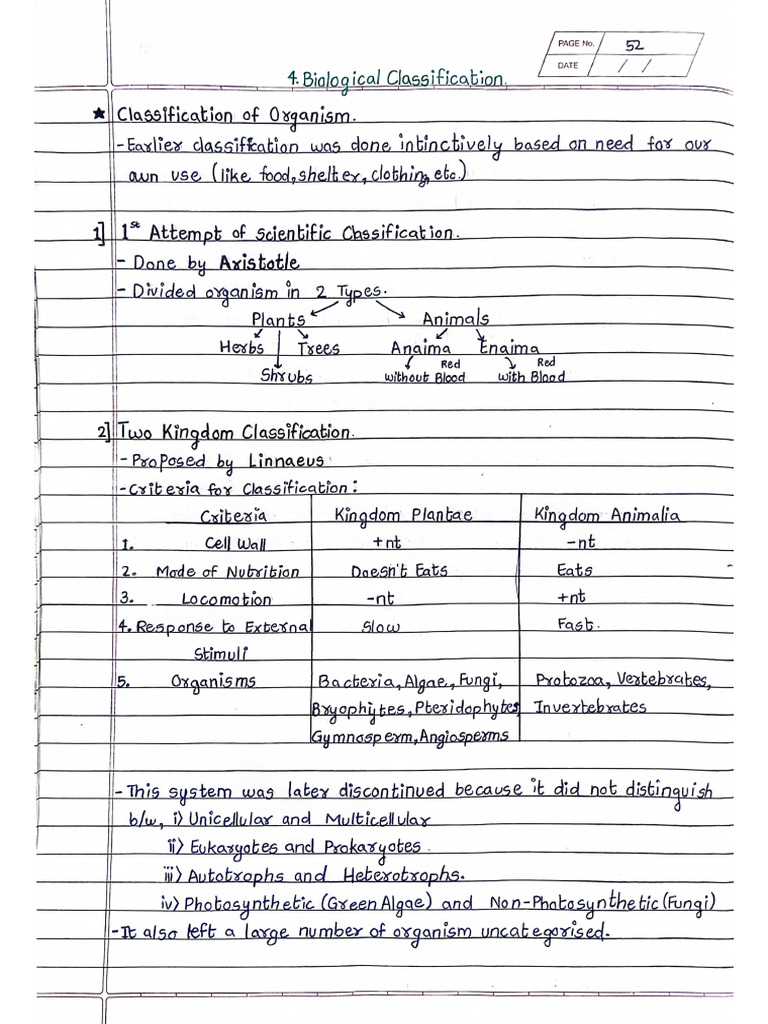 PAGE No. 52
DATE / /
4. Biological Classification.
★ Classification of Organism.
- Earlier classification was done intinctively based on need for our
own use (like food, shelter, clothing, etc.)
1] 1st Attempt of Scientific Classification.
- Done by Aristotle
- Divided organism in 2 Types.
Plants Animals
Herbs Trees Anaima Enaima
Shrubs without Red Blood with Red Blood
2] Two Kingdom Classification.
- Proposed by Linnaeus
- Criteria for Classification:
Criteria Kingdom Plantae Kingdom Animalia
1. Cell Wall +nt -nt
2. Mode of Nutrition Doesn't Eats Eats
3. Locomotion -nt +nt
4. Response to External Slow Fast.
Stimuli
5. Organisms Bacteria, Algae, Fungi, Protozoa, Vertebrates,
Bryophytes, Pteridophytes Invertebrates
Gymnosperm, Angiosperms
- This system was later discontinued because it did not distinguish
b/w, i) Unicellular and Multicellular
ii) Eukaryotes and Prokaryotes.
iii) Autotrophs and Heterotrophs.
iv) Photosynthetic (Green Algae) and Non-Photosynthetic (Fungi)
- It also left a large number of organism uncategorised.